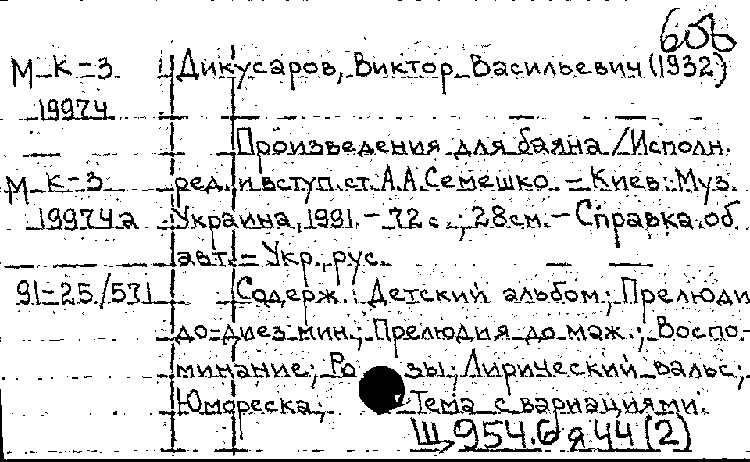 608
М К-3 Дикусаров, Виктор Васильевич (1932)
19974
Произведения для баяна / Исполн.
М К-3 ред. и вступ. ст. А.А. Семешко. - Киев: Муз.
19974а Украина, 1991. - 72 с.; 28 см. - Справка об
авт. - Укр., рус.
91-25/531 Содерж.: Детский альбом; Прелюди
до-диез мин.; Прелюдия до маж.; Воспо-
минание; Ро зы; Лирический вальс;
Юмореска; Тема с вариациями.
Щ 954.6 я 44 (2)